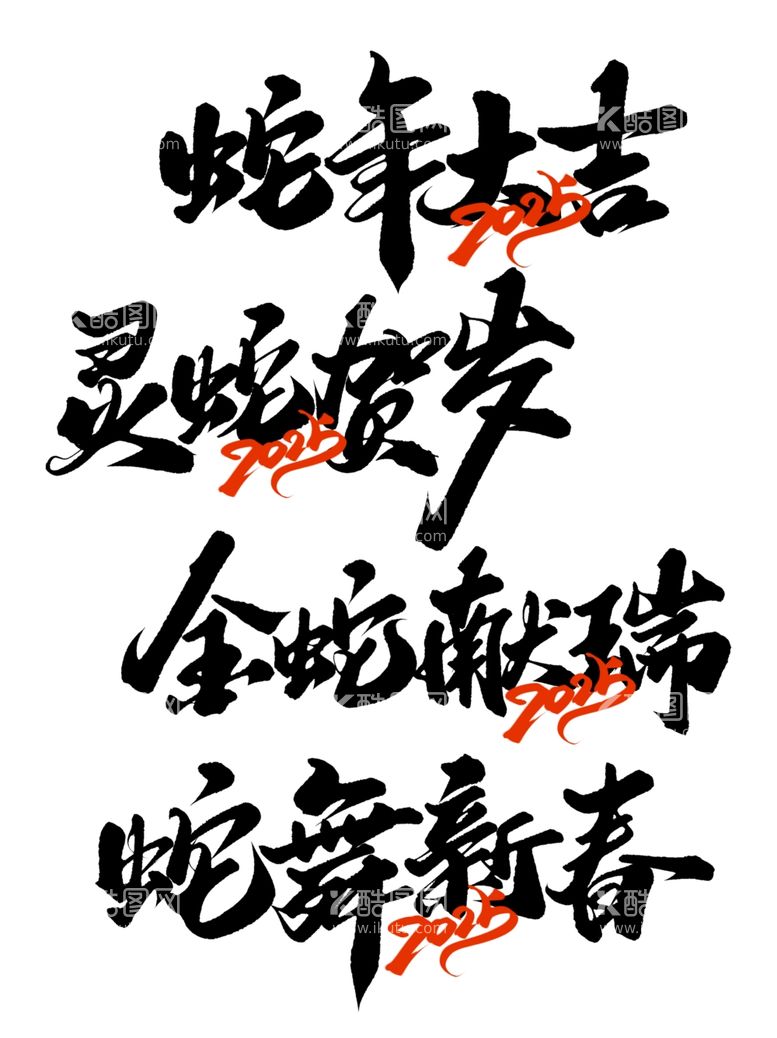 蛇年大吉
2025
灵蛇贺岁
2025
金蛇献瑞
2025
蛇舞新春
2025
酷图网
www.ikutu.com